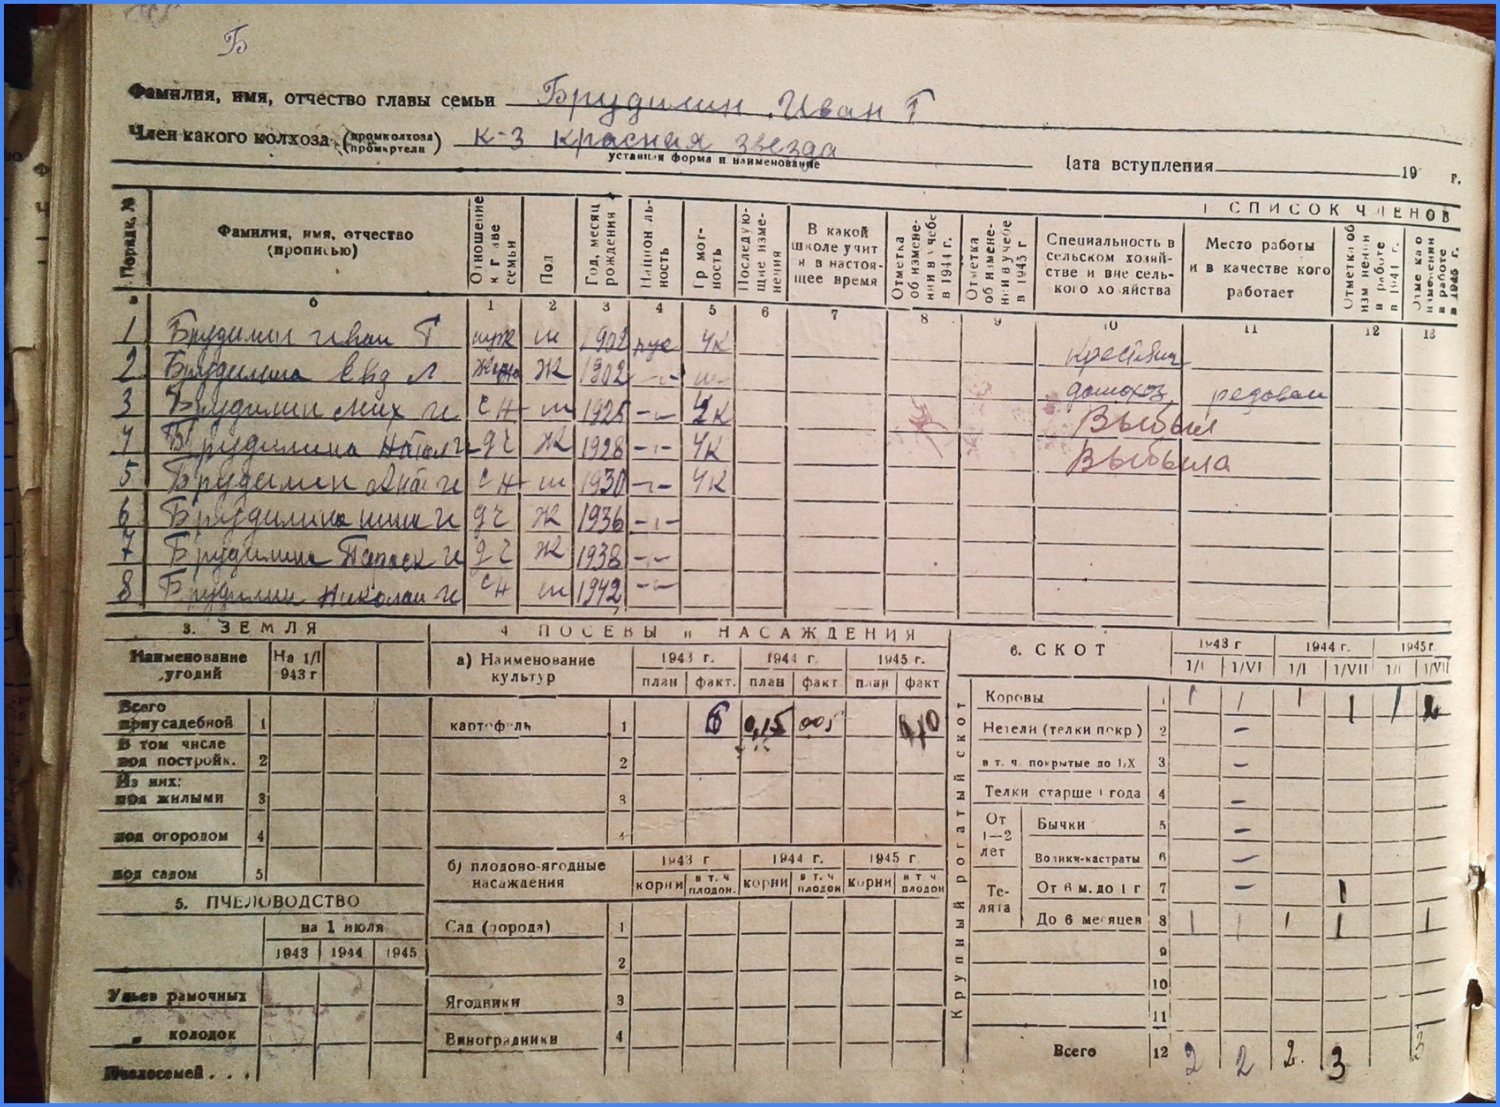 Б
Фамилия, имя, отчество главы семьи Брудилин Иван Г
Член какого колхоза (промколхоза промартели) к-з Красная звезда
уставная форма и наименование
Дата вступления 19 г.
1 СПИСОК ЧЛЕНОВ
Порядк. № Фамилия, имя, отчество (прописью) Отношение к главе семьи Пол Год, месяц рождения Националь-ность Грамот-ность Последую-щие изме-нения В какой школе учит я в настоя-щее время Отметка об измене-нии в учебе в 1944 г. Отметка об измене-нии в учебе в 1945 г Специальность в сельском хозяй-стве и вне сель-кого хозяйства Место работы и в качестве кого работает Отметка об изменении в работе в 1944 г. Отметка о изменении в работе в 1945 г.
а б 1 2 3 4 5 6 7 8 9 10 11 12 13
1 Брудилин Иван Г муж м 1902 рус ЧК
крестьян
2 Брудилина Евд Л жена ж 1902 -"-
домохоз. редовая
3 Брудилин Мих И сн м 1925 -"- ЧК Выбыл
4 Брудилина Натал И дч ж 1928 -"- ЧК Выбыла
5 Брудилин И сн м 1930 -"- ЧК
6 Брудилина И дч ж 1936 -"-
7 Брудилина Параск И дч ж 1938 -"-
8 Брудилин Николай И сн м 1942 -"-
3. ЗЕМЛЯ
Наименование угодий На 1/I 943 г
Всего приусадебной 1
В том числе под постройк. 2
Из них: под жилыми 3
под огородом 4
под садом 5
5. ПЧЕЛОВОДСТВО
на 1 июля
1943 1944 1945
Ульев рамочных
„ колодок
Пчелосемей . . .
4 ПОСЕВЫ и НАСАЖДЕНИЯ
а) Наименование культур 1943 г. 1944 г. 1945 г.
план факт. план факт план факт
картофель 1 0,15
2
3
4
б) плодово-ягодные насаждения 1943 г 1944 г. 1945 г.
корни в т. ч плодон. корни в т. ч плодон корни в т. ч плодон
Сад (города) 1
2
Ягодники 3
Виноградники 4
6. СКОТ 1943 г 1944 г. 1945 г.
1/I 1/VI 1/I 1/VII 1/I 1/VII
Крупный рогатый скот
Коровы 1 1 1 1 1 1 2
Нетели (телки покр) 2 –
в т. ч. покрытые до 1/X 3 –
Телки старше 1 года 4 –
От 1—2 лет
Бычки 5 –
Волики-кастраты 6 –
Те-лята
От 6 м. до 1 г 7 – 1
До 6 месяцев 8 1 1 1 1 1
9
10
11
Всего 12 2 2 2 3